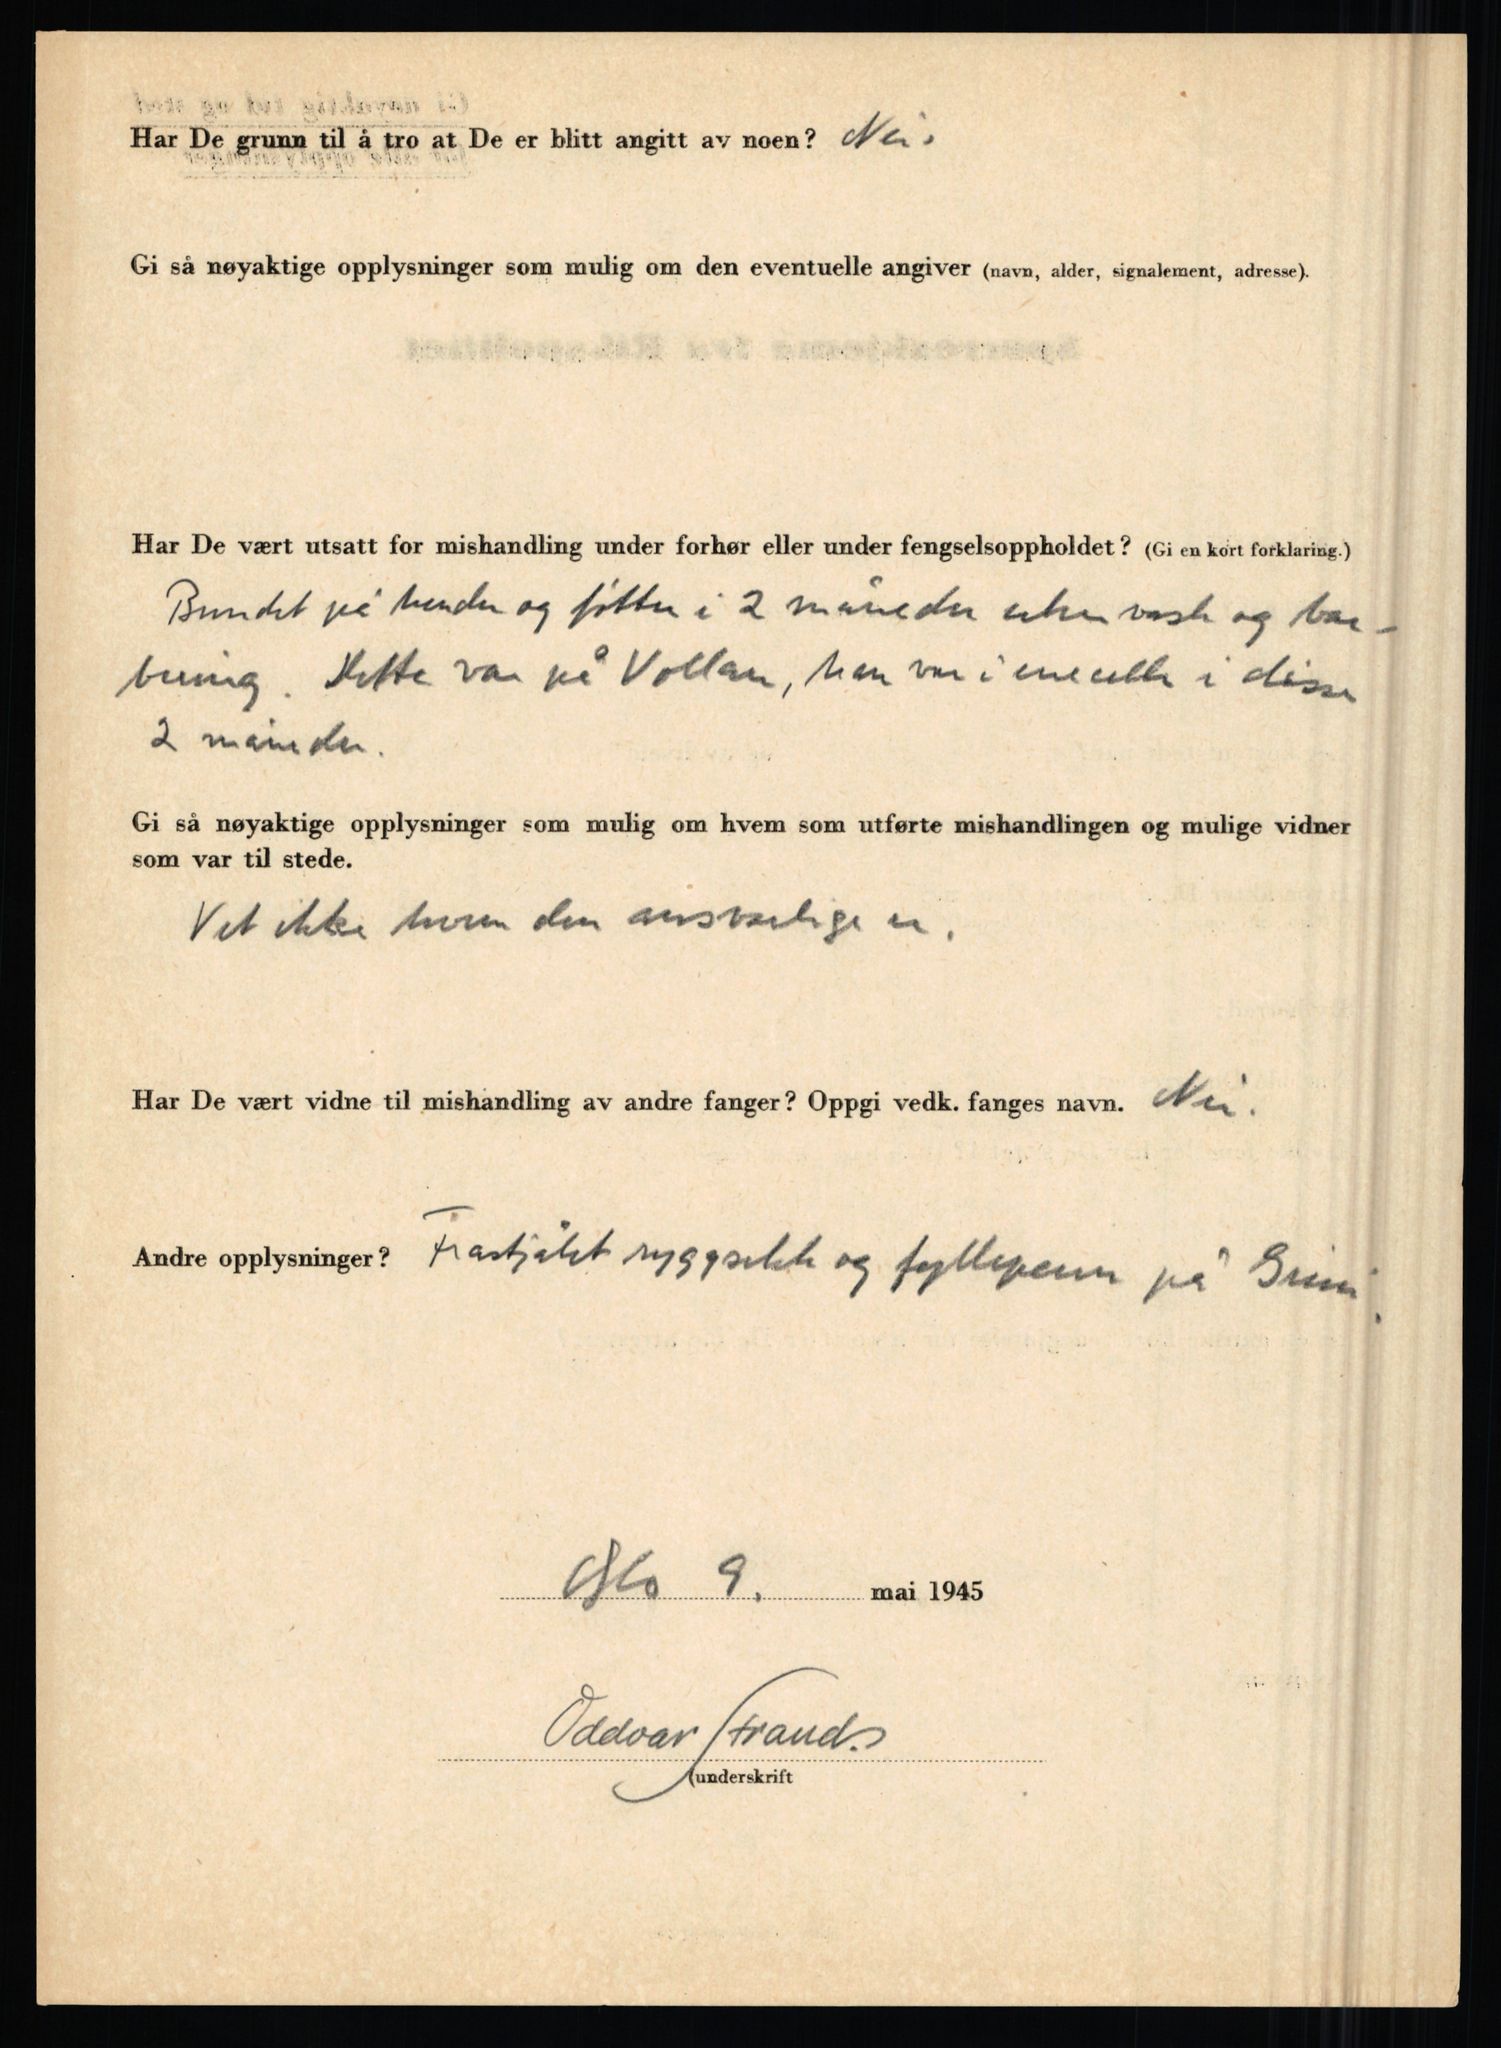 Har De grunn til å tro at De er blitt angitt av noen? Nei.
Gi så nøyaktige opplysninger som mulig om den eventuelle angiver (navn, alder, signalement, adresse).
Har De vært utsatt for mishandling under forhør eller under fengselsoppholdet? (Gi en kort forklaring.)
Bundet på hender og føtter i 2 måneder uten vask og bar-
bering. Dette var på Vollan, han var i enecelle i disse
2 måneder.
Gi så nøyaktige opplysninger som mulig om hvem som utførte mishandlingen og mulige vidner
som var til stede.
Vet ikke hvem den ansvarlige er.
Har De vært vidne til mishandling av andre fanger? Oppgi vedk. fanges navn. Nei.
Andre opplysninger? Frastjålet ryggsekk og fyllepenn på Grini.
Oslo 9. mai 1945
Oddvar Strand.
(underskrift